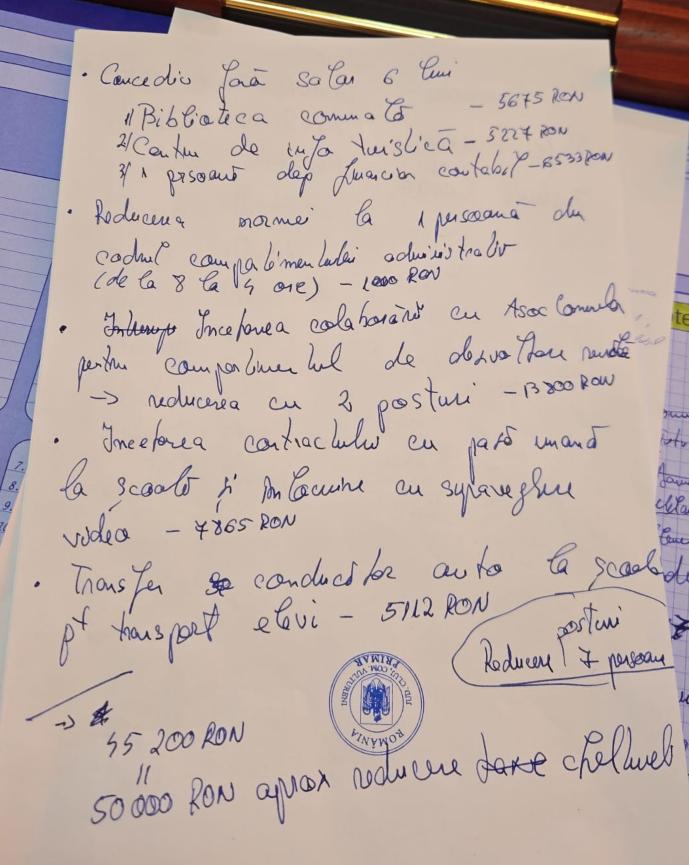 • Concediu fără salar 6 luni
1/ Biblioteca comunală - 5675 RON
2/ Centru de info turistică - 5227 RON
3/ 1 persoană dep financiar contabil - 6533 RON
• Reducerea normei la 1 persoană din
cadrul compartimentului administrativ
(de la 8 la 4 ore) - 1000 RON
• Încetarea colaborării cu Asoc Comunelor
pentru compartimentul de dezvoltare
→ reducerea cu 2 posturi - 13 800 RON
• Încetarea contractului cu pază umană
la școală și înlocuire cu supraveghere
video - 7865 RON
• Transfer conducător auto la școală
pt transport elevi - 5112 RON
posturi
Reducere 7 persoane
→
45 200 RON
=
50 000 RON aprox reducere cheltuieli
JUD. CLUJ, COM. VULTURENI
PRIMAR
ROMÂNIA
7.
8.
9.